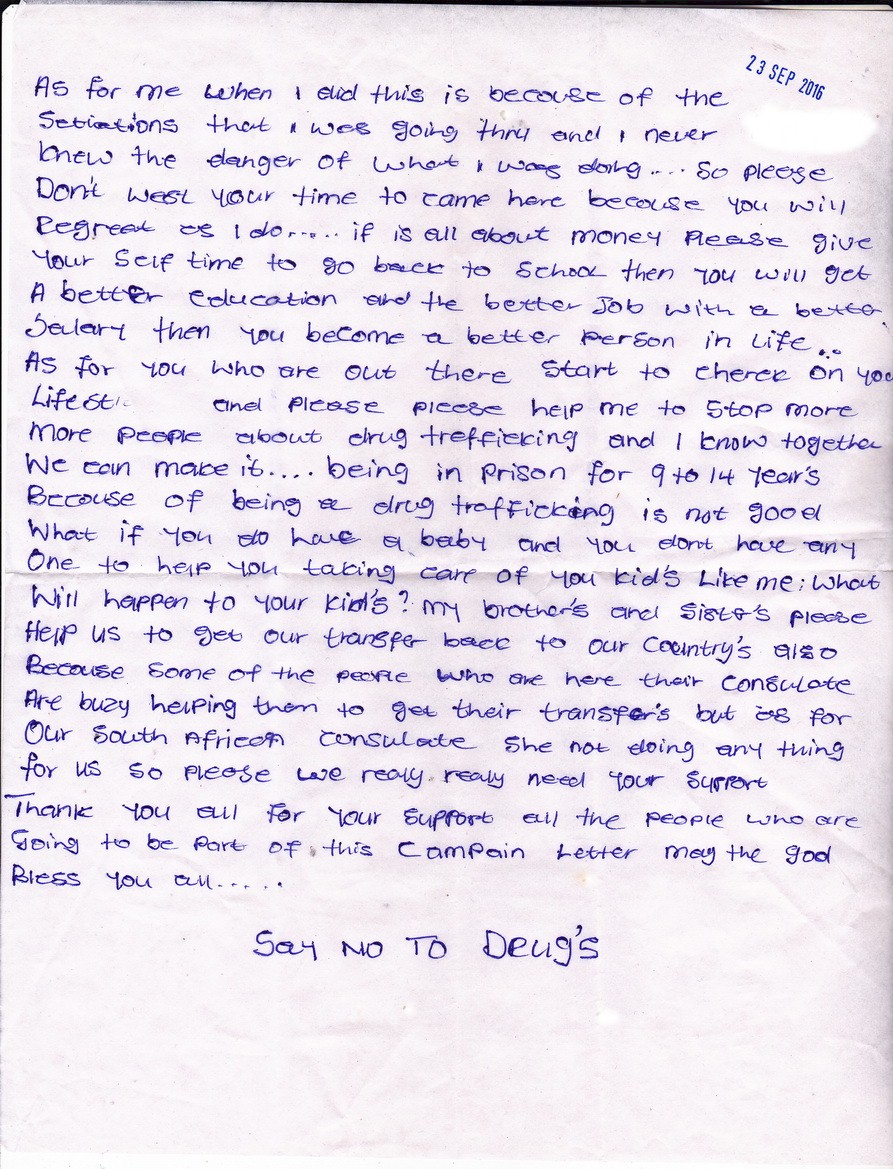 23 SEP 2016
As for me when I did this is because of the
Setiations that I was going thru and I never
knew the danger of what I was doing.... So please
Don't west your time to came here because you will
Regreat as I do..... if is all about money Please give
Your Self time to go back to School then you will get
A better education and the better Job with a better
Salary then you become a better Person in Life...
As for you who are out there start to chereck on you
Lifest and please please help me to stop more
more people about drug trefficking and I know together
We can make it.... being in Prison for 9 to 14 year's
Because of being a drug trafficking is not good
What if you do have a baby and you dont have any
One to help you taking care of you kid's Like me; what
Will happen to your kid's? my brother's and sister's please
Help us to get our transfer back to our Country's also
Because some of the people who are here their consulate
Are buzy helping them to get their transfer's but as for
Our South African consulate she not doing any thing
for us so please we realy realy need your support
Thank you all for your support all the people who are
Going to be part of this campain Letter may the god
Bless you all.....
Say NO TO Drug's